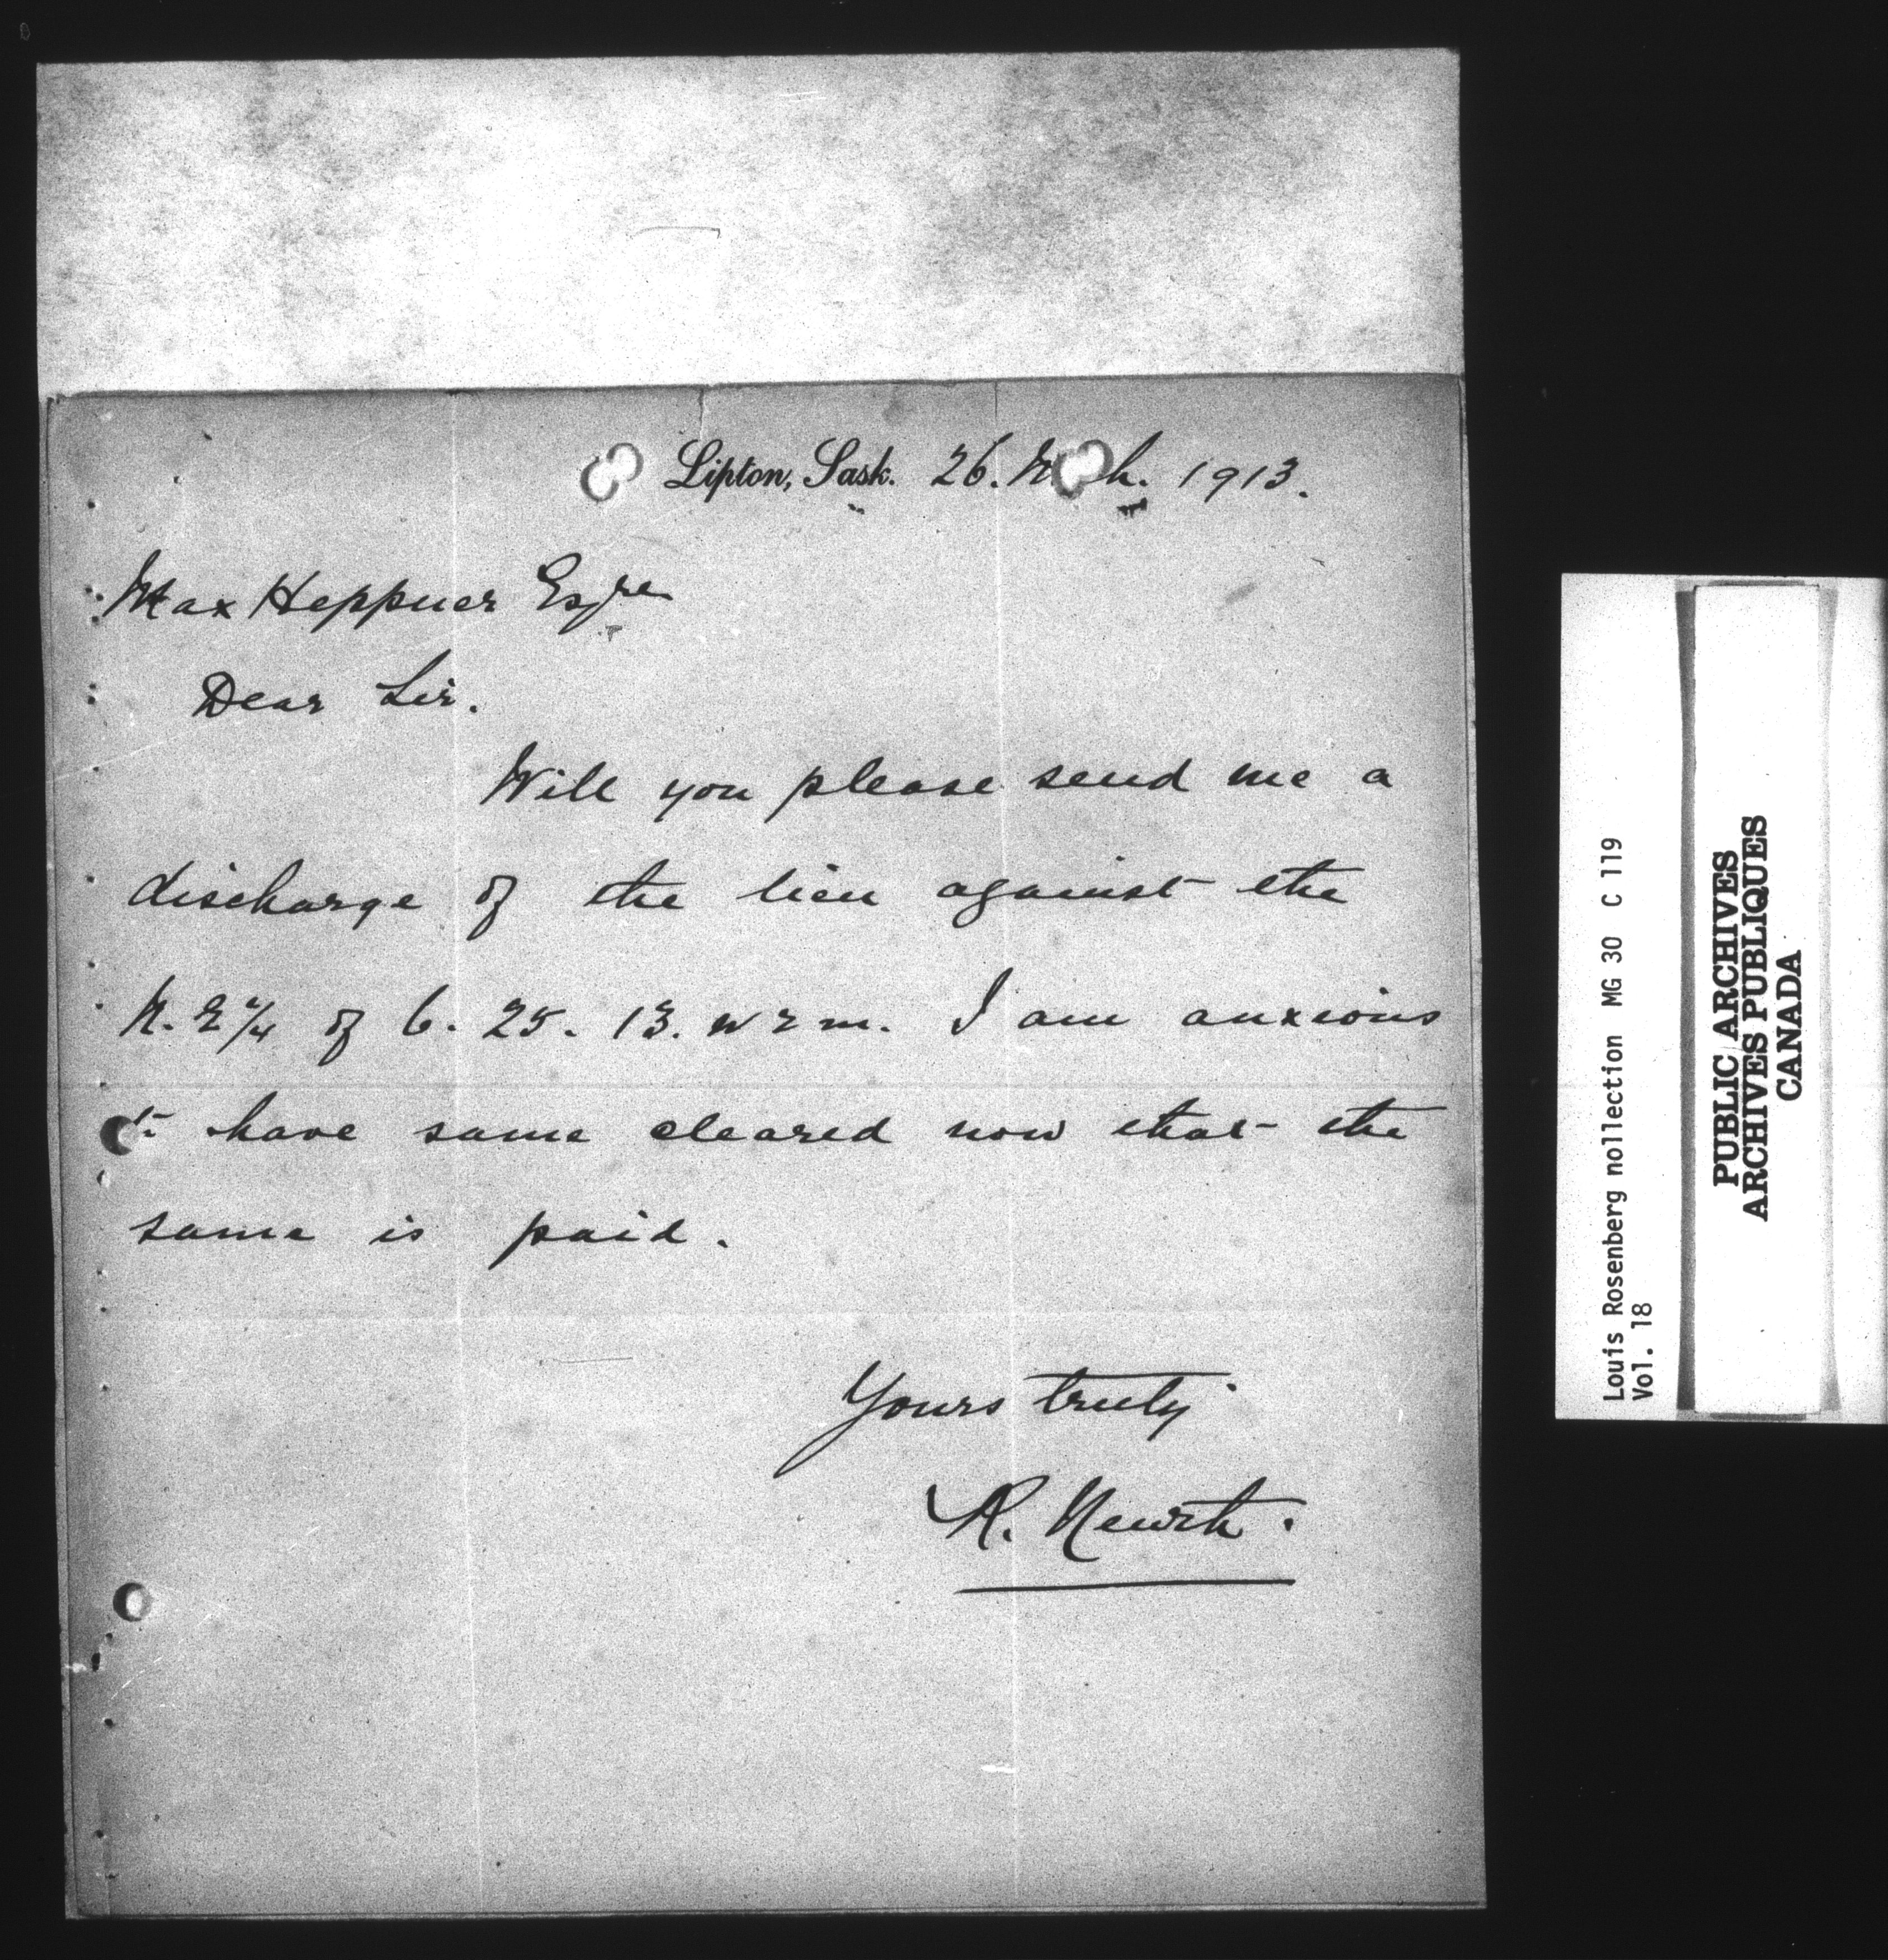 Lipton, Sask. 26. Mch. 1913.
Max Heppner Esqre
Dear Sir.
Will you please send me a
discharge of the lien against the
N. E ¼ of 6. 25. 13. W 2 m. I am anxious
to have same cleared now that the
same is paid.
Yours truly
R. Newth.
Louis Rosenberg nollection MG 30 C 119
Vol. 18
PUBLIC ARCHIVES
ARCHIVES PUBLIQUES
CANADA